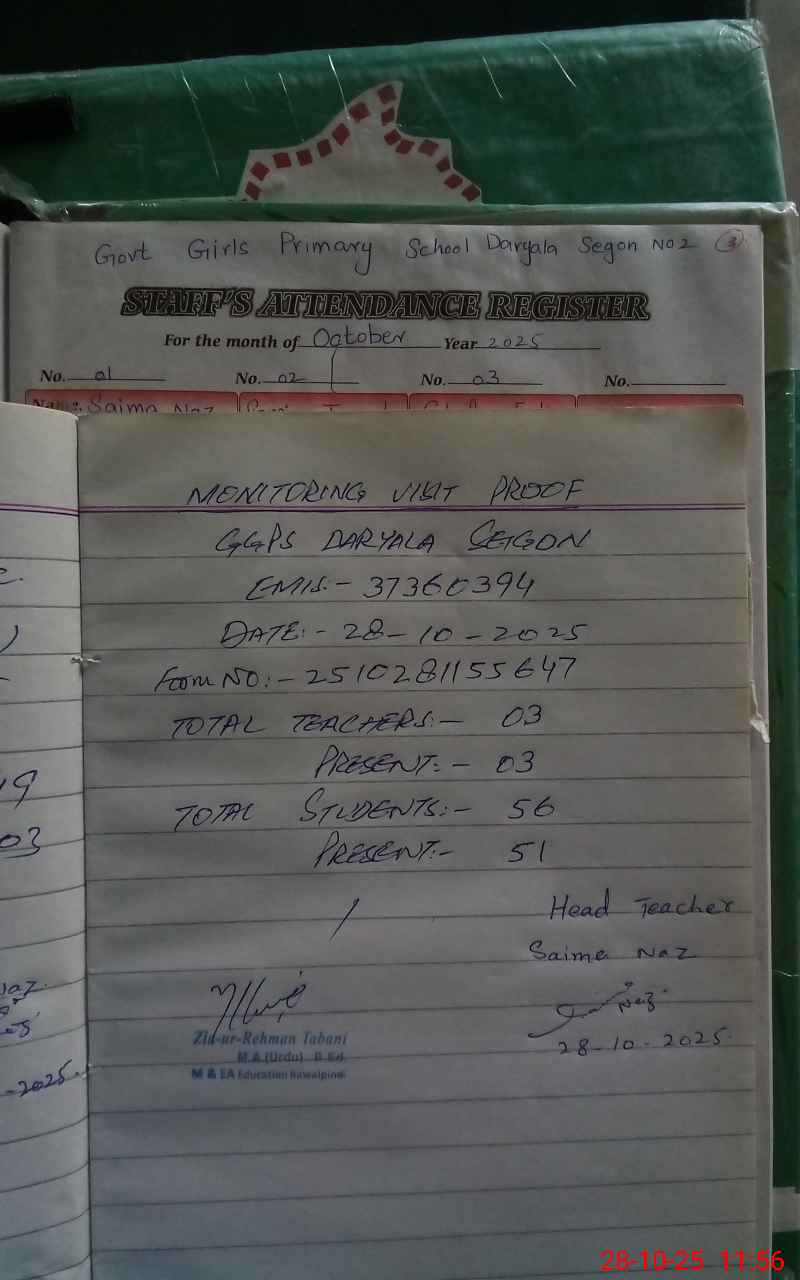 Govt Girls Primary School Daryala Segon No 2 3
STAFF'S ATTENDANCE REGISTER
For the month of October Year 2025
No. 01 No. 02 No. 03 No.
Name. Saima Naz
MONITORING VISIT PROOF
GGPS DARYALA SEIGON
EMIS:- 37360394
DATE:- 28-10-2025
Form NO:- 2510281155647
TOTAL TEACHERS:- 03
PRESENT:- 03
TOTAL STUDENTS:- 56
PRESENT:- 51
Head Teacher
Saima Naz
Naz
28-10-2025.
Zia-ur-Rehman Tabani
M.A (Urdu) B.Ed.
M & EA Education Rawalpindi
19
03
-2025.
28-10-25 11:56